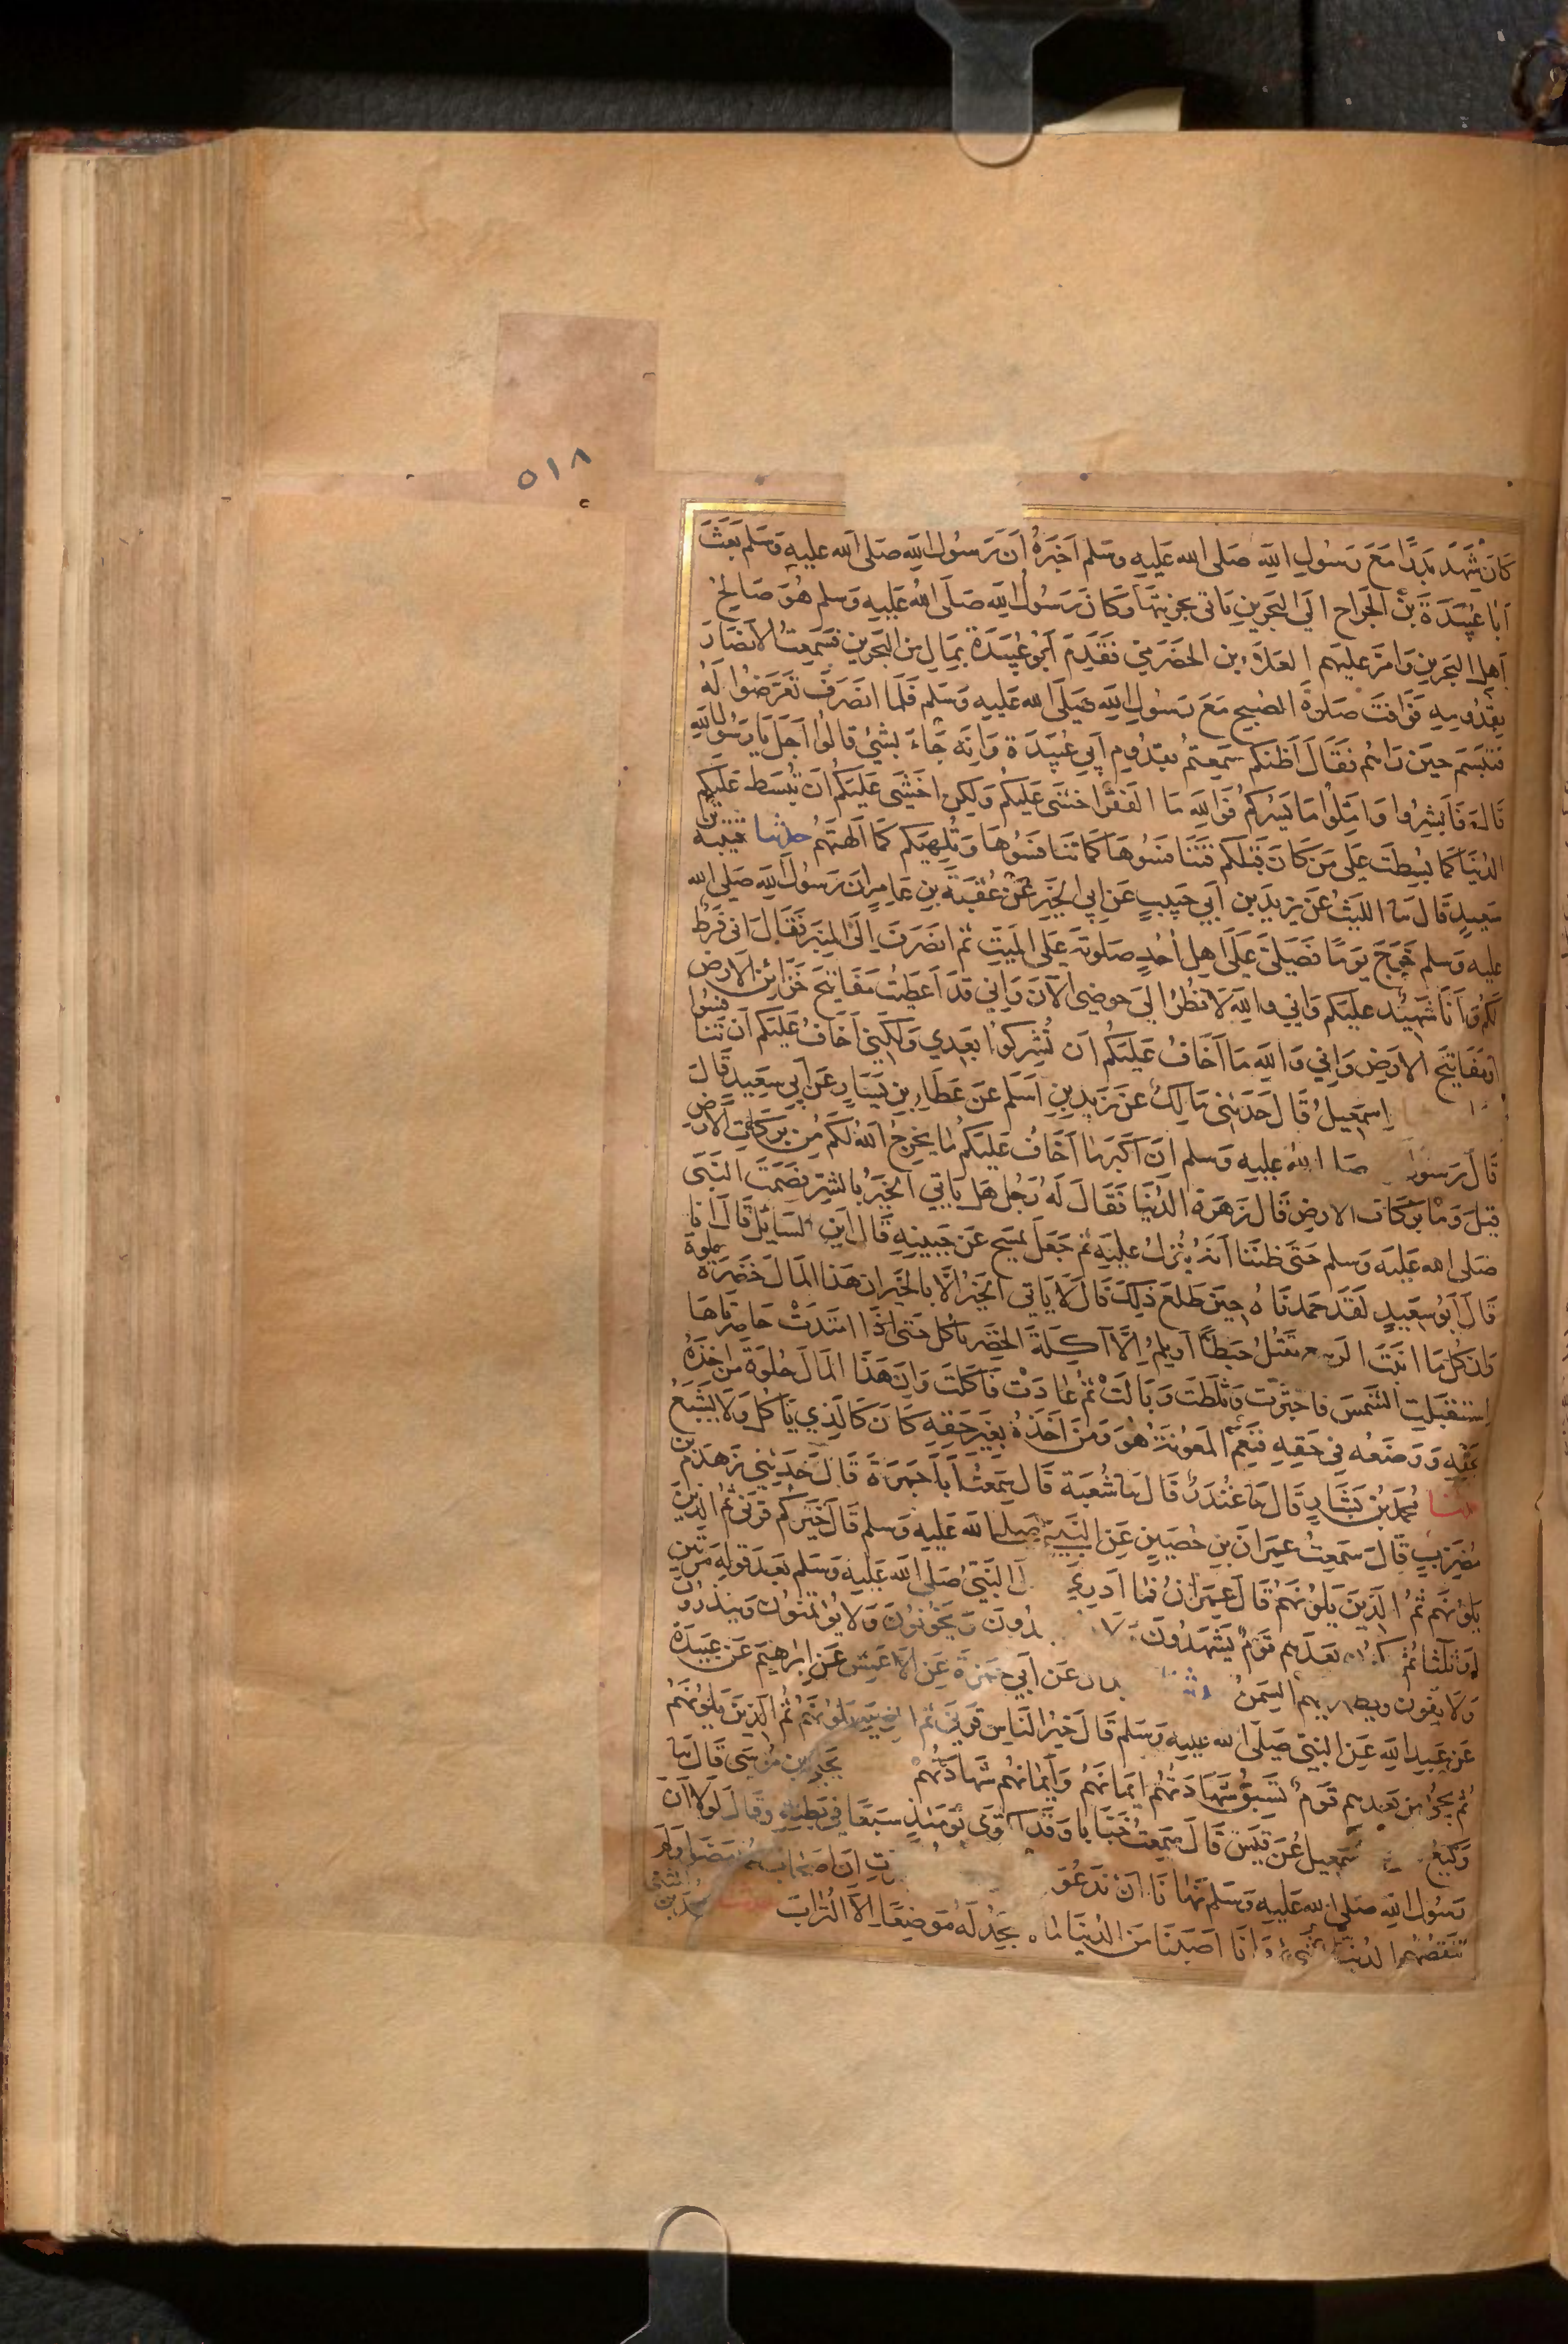 ٥١٨
كَانَ شَهِدَ بَدرًا مَعَ رَسُولِ اللهِ صَلى الله عَلَيهِ وسَلم اَخبَرَهُ اَنَ رَسُولَ اللهِ صَلى الله عليهِ وَسَلم بَعَثَ
اَبَا عُبَيدَةَ بنَ الجَراح الَى البَحرينِ يَاتى بجزيتهَا وَكَانَ رَسُولُ اللهِ صَلَى اللهُ عَلَيهِ وَسلم هُوَ صَالحَ
اَهلَ البَحرينِ وَامرَ عليهم العَلَاءَ بن الحَضرَميّ فَقَدِمَ اَبُو عُبَيدَةَ بِمَالٍ مِنَ البَحرينِ فسَمِعَتُ الانصَارُ
بِقدُومِهِ فوَافَت صَلوةَ الصُبح مَعَ رَسُولِ اللهِ صَلَى الله عَلَيهِ وَسَلم فَلَما انصَرَفَ تَعَرَضُوا لَهُ
فَتَبَسَمَ حِينَ رَاهُم فَقَالَ اَظُنكم سَمِعتُم بقدُومِ اَبِي عُبَيدَةَ وَانهُ جَاءَ بشَيءٍ قالُوا اَجَل يَا رَسُولَ اللهِ
قَالَ فَاَبشِروا وَامّلُوا مَا يَسُركم فَوَاللهِ مَا الفَقرَ اخشَى عَلَيكُم وَلَكِن اخشَى عَلَيكُم اَن تُبسَط عَلَيكم
الدُنيَا كَمَا بُسِطَت عَلَى مَن كَانَ قَبلَكم فَتَنَافَسُوهَا كَمَا تَنَافَسُوهَا وَتُلهِيَكم كَمَا اَلهَتهُم حدثنا قتيبة بن
سَعِيدٍ قَالَ نا الليَثُ عَن يزِيدَ بن اَبي حَبِيبٍ عَن اَبي الخَيرِ عَن عُقبَةَ بنِ عَامِرٍ اَنَ رَسُولَ اللهِ صَلى الله
عليهِ وَسلم خَرَجَ يَومًا فَصَلّى عَلَى اَهلِ اُحُدٍ صَلوتَهُ عَلَى المَيّتِ ثُم انصَرَفَ اِلَى المِنبَرِ فَقَالَ انى فَرَطٌ
لَكُم وَاَنَا شَهِيدٌ عليَكم وَانِي واللهِ لَانظُرُ الَى حَوضِى الآنَ وَاِنِي قَد اُعطِيتُ مَفَاتِيحَ خَزَائِن الارضِ
اَو مَفَاتِيحَ الارضِ وَاِنِي وَاللهِ مَا اَخَافُ عَلَيكُم اَن تُشرِكُوا بَعدِي وَلَكِنِى اَخَافُ عَلَيكُم اَن تَنَافَسُوا
اِسمَعِيلُ قَالَ حَدَثَنى مَالِكٌ عَن زَيدِ بنِ اَسلَم عَن عَطَاءِ بنِ يَسَارٍ عَن اَبِي سَعِيدٍ قَالَ
قَالَ رَسول صَلَى اللهُ عليهِ وَسلم اِنَ اكَبَرَ مَا اَخَافُ عَلَيكُم مَا يُخرِجُ اللهُ لَكم مِن بَركَاتِ الارَضِ
قِيلَ وَمَا بَرَكَات الارضِ قَالَ زَهَرَةُ الدُنيَا فَقَالَ لَهُ رَجُلٌ هَل يَاتِي الخَيرُ بالشَرِ فَصَمَتَ النَبيّ
صَلى الله عَلَيهِ وَسلم حَتىَ ظنَنا اَنهُ يُنزَلُ عليهِ ثُم جَعَلَ يمسَح عَن جَبِينِهِ قَالَ اَينَ السَائِلُ قَالَ انا
قَالَ اَبُو سَعِيدٍ لَقَد حَمدناهُ حِينَ طَلعَ ذلِكَ قَالَ لَا يَاتي الخَيرُ الّا بالخَيرِ ان هَذا المَالَ خَضِرَةٌ حلوة
وَان كُلَ مَا انبَتَ الربيع يَقتُلُ حَبَطًا اَو يلِمُ اِلَّا آكِلَةَ الخَضِرِ تاكُل حَتَى اذَا امتَدَت خَاصِرَتَاهَا
اِستَقبَلَتِ الشَمسَ فاجتَرَت وَثَلَطَت وَبَالَت ثُم عَادَت فَاكَلَت وَاِنَ هَذَا المَالَ حُلوَةٌ مَن اخَذَهُ
بحَقِهِ وَوَضَعَه فِي حَقِهِ فَنِعمَ المَعُونَةُ هُوَ وَمَن اَخَذَهُ بِغَيرِ حَقِهِ كَانَ كَالَذِي يَاكل وَلَا يَشبَعُ
حدثنا مُحمَدُ بنُ بَشَارٍ قَالَ نا غُندَرٌ قَالَ نا شُعبَة قَالَ سَمِعتُ اَبَا جَمرَةَ قَالَ حَدَثَنِي زَهدَمُ بن
مُضَرِبٍ قَالَ سَمِعتُ عِمرَانَ بنِ حُصَينٍ عَنِ النَبيّ صلى الله عَلَيهِ وَسلم قَالَ خَيرُكم قَرنى ثُم الذِينَ
يَلُونَهم ثُم الذَينَ يَلُونَهُم قَالَ عِمرَانُ فَمَا اَدرِي النَبيّ صَلى الله عَلَيهِ وَسَلم بَعدَ قَولِهِ مَرتَينِ
اَو ثلَاثا ثُم بَعدَهم قَومٌ يَشهَدُونَ وَيَخُونُونَ وَلَا يُؤتَمنُونَ وَينذرُونَ
وَلَا يفُونَ ويظهر فيهم السِمَنُ عَن اَبي حَمزَةَ عَن الاعمَش عَن اِبرَاهِيم عَن عَبِيدَةَ
عَن عَبدِ اللهِ عَن النَبيّ صَلَى الله عَليهِ وَسَلم قَالَ خَيرُ النَاسِ قَرنِي ثُم الذِينَ يَلُونَهُم ثُم الذَينَ يَلُونَهُم
ثُم يَجيءُ مِن بَعدِهِم قَومٌ تَسبَقُ شَهَادَتُهُم اَيمَانَهُم وَاَيمَانُهُم شَهَادَتَهُم يَحيَى بن مُوسَى قَالَ نا
وَكِيعٌ اسمعِيل عَن قَيسٍ قَالَ سَمِعتُ خَبَابًا وَقَد اكتَوَى يَومَئِذٍ سَبعًا فِي بَطنِهِ وَقَالَ لَولَا اَنَ
رَسُولَ اللهِ صَلَى الله عَلَيهِ وَسَلم نَهَانَا اَن نَدعُوَ اِنَ اصحَابَ مَضَوا وَلَم
تَنقُصهُم الدُنيَا وَاَنَا اَصَبنَا مِنَ الدُنيَا مَا نجَدُ لَهُ مَوضِعًا اِلا التُرَابَ حدثنا محمد بن المثنى